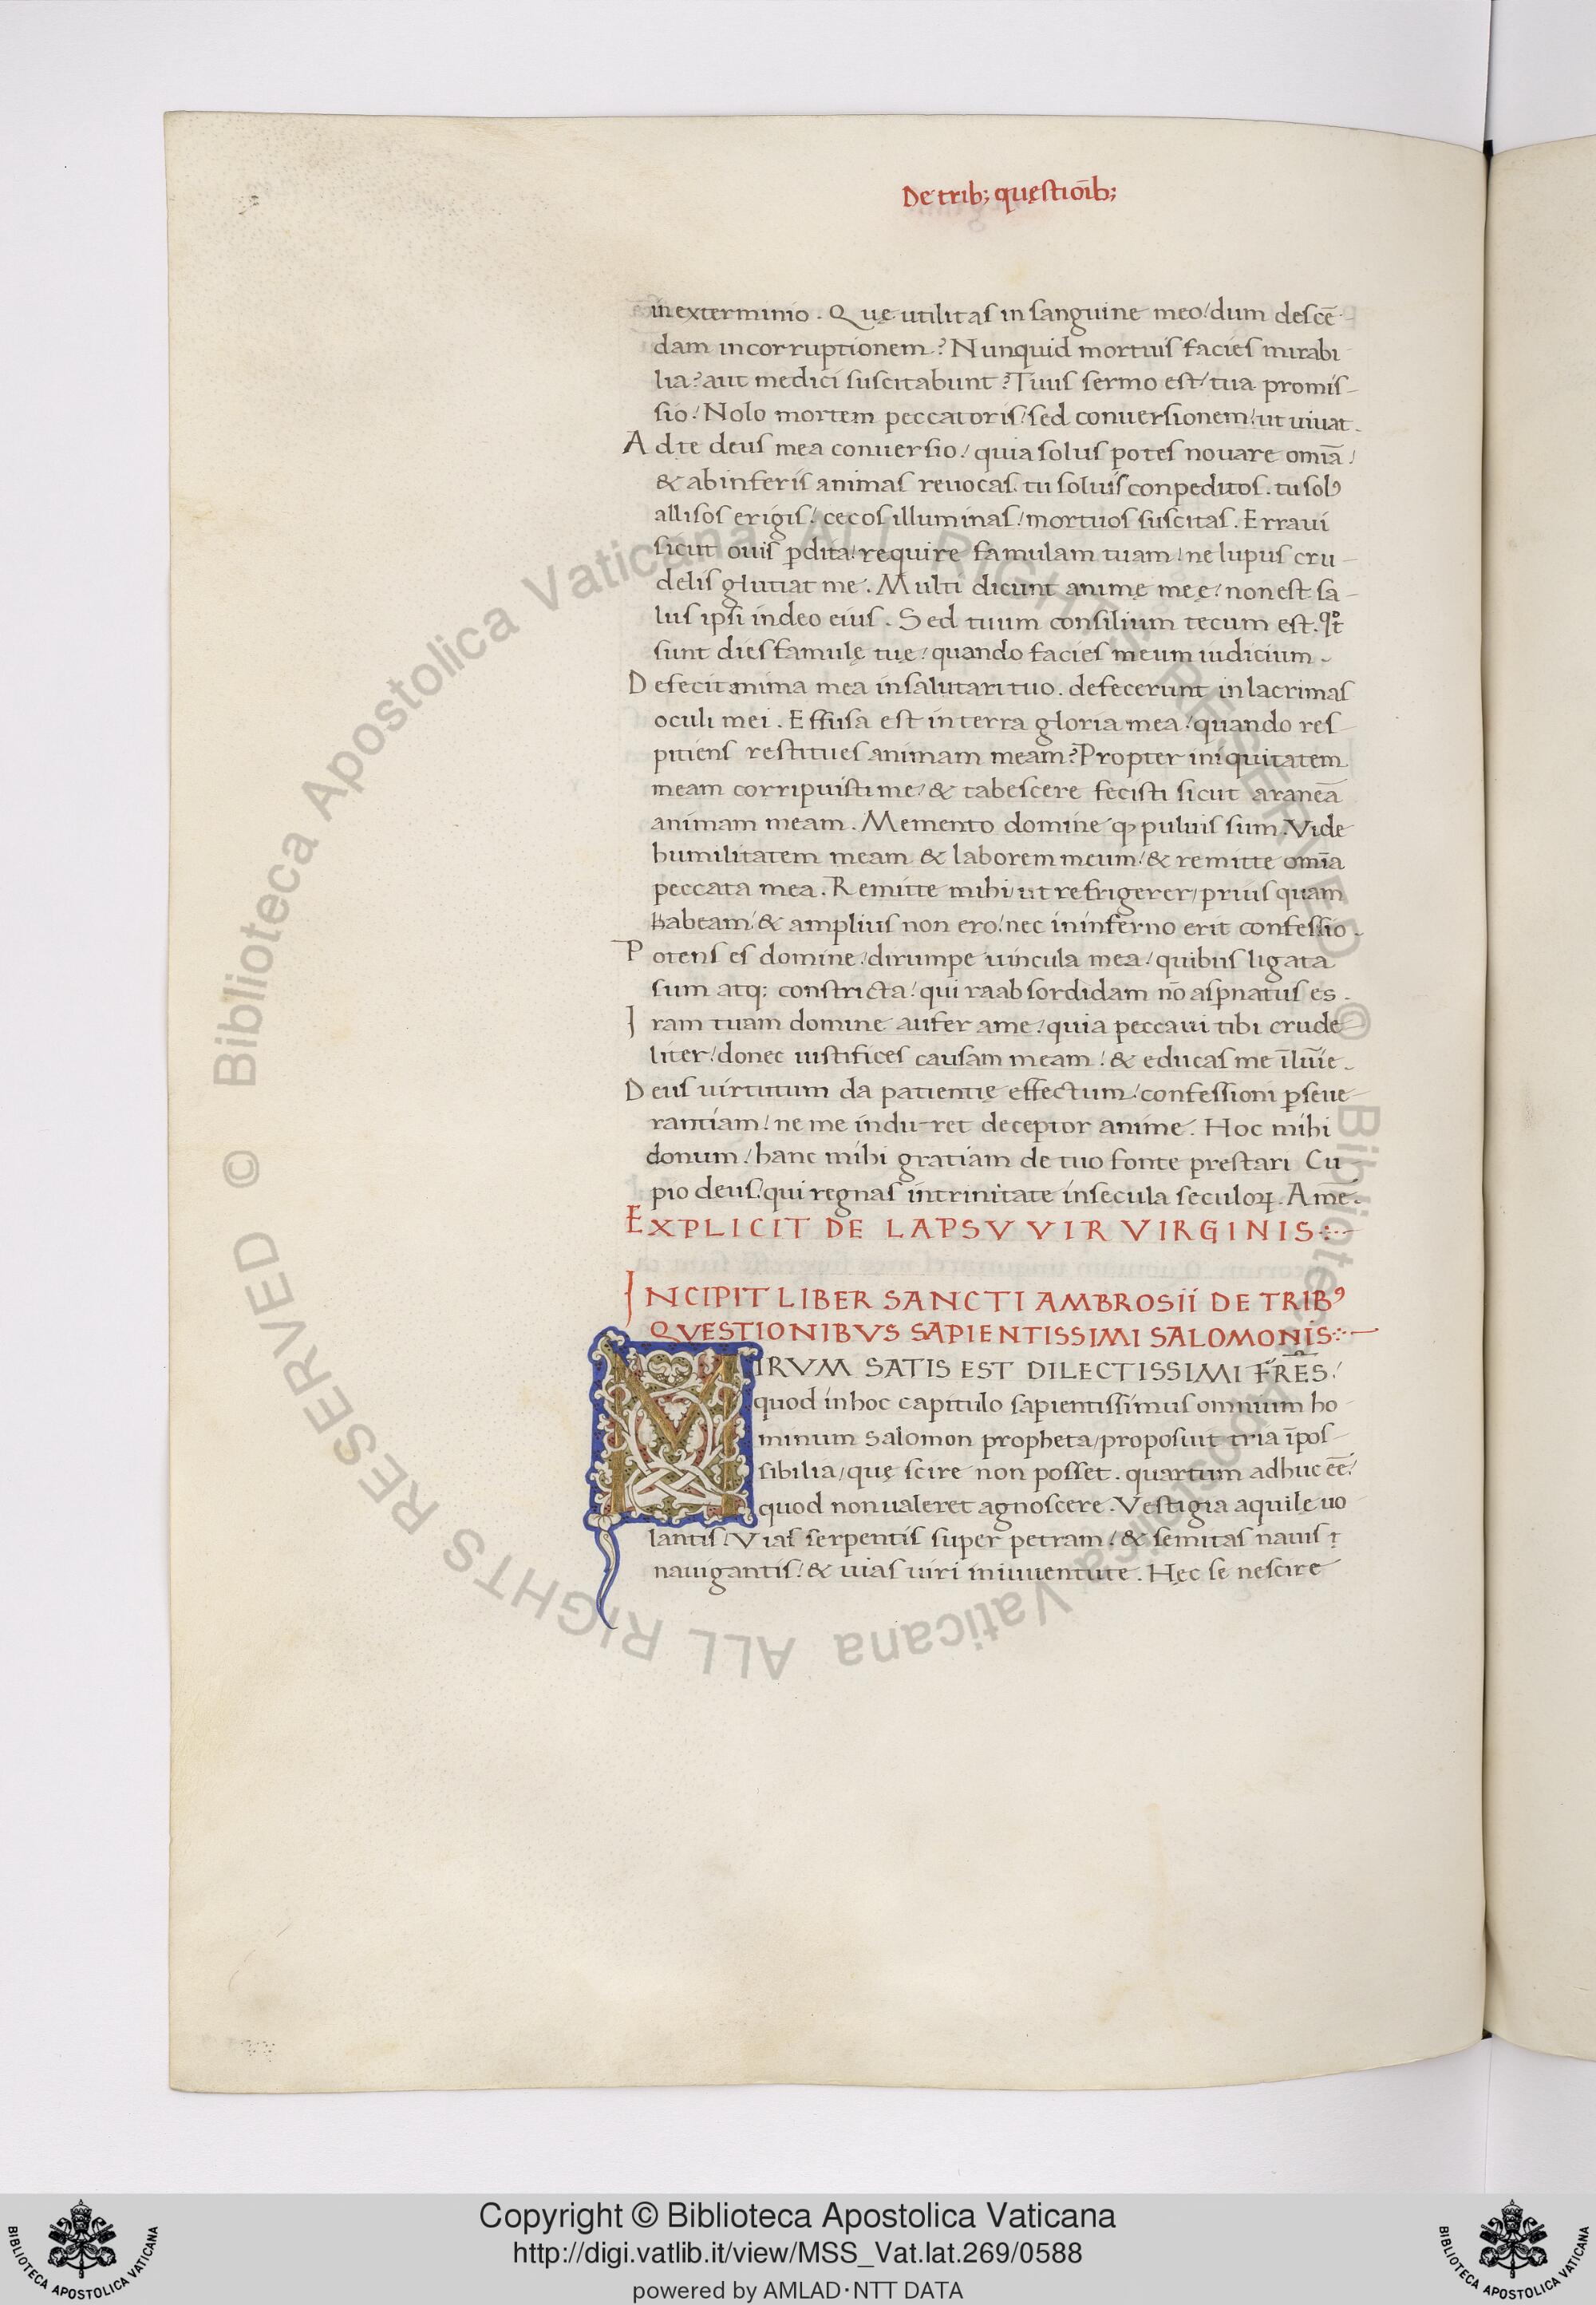 De trib; quęstioīb;
in exterminio. Quę utilitas in sanguine meo/ dum descē-
dam in corruptionem? Nunquid mortuis facies mirabi
lia? aut medici suscitabunt? Tuus sermo est/ tua promis-
sio/ Nolo mortem peccatoris/ sed conuersionem/ ut uiuat.
Ad te deus mea conuersio/ quia solus potes nouare omīa/
& ab inferis animas reuocas. tu soluis conpeditos. tu solꝰ
allisos erigis/ cecos illuminas/ mortuos suscitas. Erraui
sicut ouis ꝑdita/ require famulam tuam/ ne lupus cru-
delis glutiat me. Multi dicunt animę meę/ non est sa-
lus ipsi in deo eius. Sed tuum consilium tecum est. qͦt
sunt dies famulę tuę/ quando facies meum iudicium.
Defecit anima mea in salutari tuo. defecerunt in lacrimas
oculi mei. Effusa est in terra gloria mea/ quando res-
pitiens restitues animam meam? Propter iniquitatem
meam corripuisti me/ & tabescere fecisti sicut araneā
animam meam. Memento domine qꝫ puluis sum. Vide
humilitatem meam & laborem meum/ & remitte omīa
peccata mea. Remitte mihi ut refrigerer/ prius quam
habeam/ & amplius non ero/ nec in inferno erit confessio.
Potens es domine/ dirumpe uincula mea/ quibus ligata
sum atq; constricta/ qui raab sordidam nō asꝑnatus es.
Iram tuam domine aufer a me/ quia peccaui tibi crude-
liter/ donec iustifices causam meam/ & educas me ī lūie.
Deus uirtutum da patientię effectum/ confessioni ꝑseue-
rantiam/ ne me indu-ret deceptor anime. Hoc mihi
donum/ hanc mihi gratiam de tuo fonte prestari Cu
pio deus/ qui regnas in trinitate in secula seculoꝝ. Amē.
EXPLICIT DE LAPSV VIR VIRGINIS
INCIPIT LIBER SANCTI AMBROSII DE TRIBꝰ
QVESTIONIBVS SAPIENTISSIMI SALOMONIS
MIRVM SATIS EST DILECTISSIMI FRĒS/
quod in hoc capitulo sapientissimus omnium ho
minum salomon propheta/ proposuit tria īpos-
sibilia/ quę scire non posset. quartum adhuc eē/
quod non ualeret agnoscere. Vestigia aquilę uo
lantis/ Vias serpentis super petram/ & semitas nauis
nauigantis/ & uias uiri in iuuentute. Hęc se nescire
© Biblioteca Apostolica Vaticana ALL RIGHTS RESERVED © Biblioteca Apostolica Vaticana ALL RIGHTS RESERVED
Copyright © Biblioteca Apostolica Vaticana
http://digi.vatlib.it/view/MSS_Vat.lat.269/0588
powered by AMLAD·NTT DATA
BIBLIOTECA APOSTOLICA VATICANA
BIBLIOTECA APOSTOLICA VATICANA